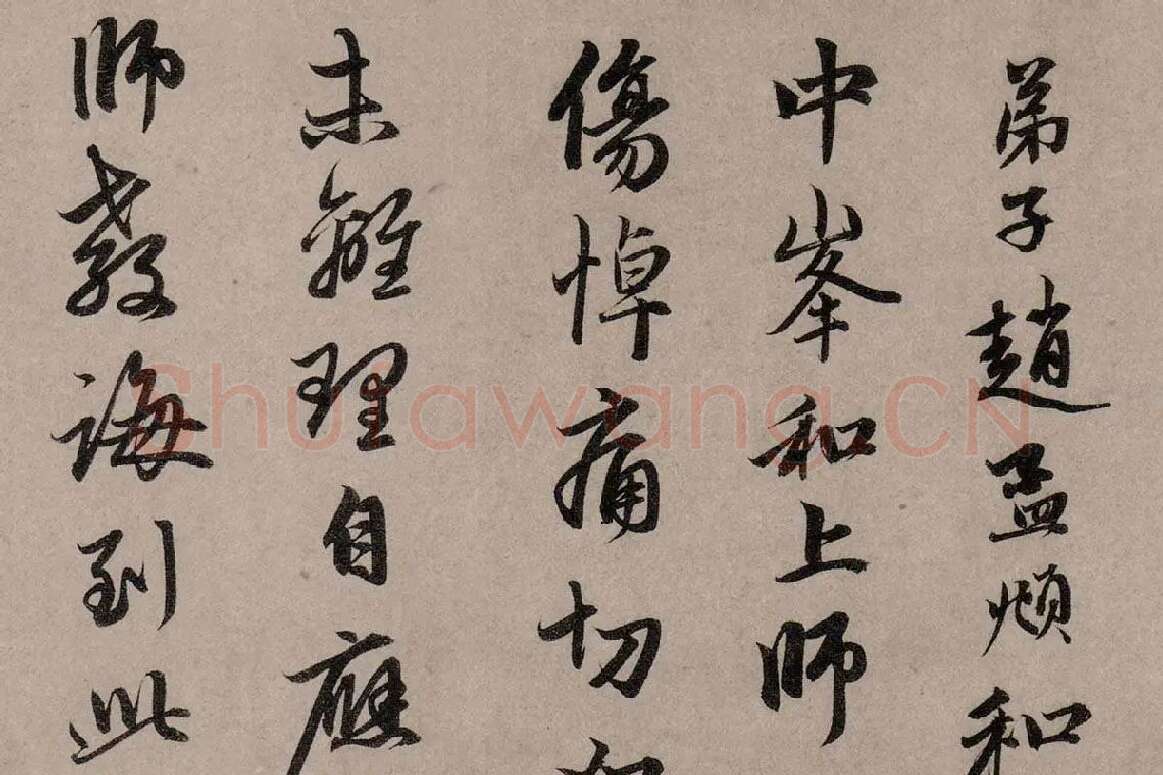 弟子趙孟頫和
中峯和上師
傷悼痛切
未離理自應
師教誨到此
Shufawang.CN